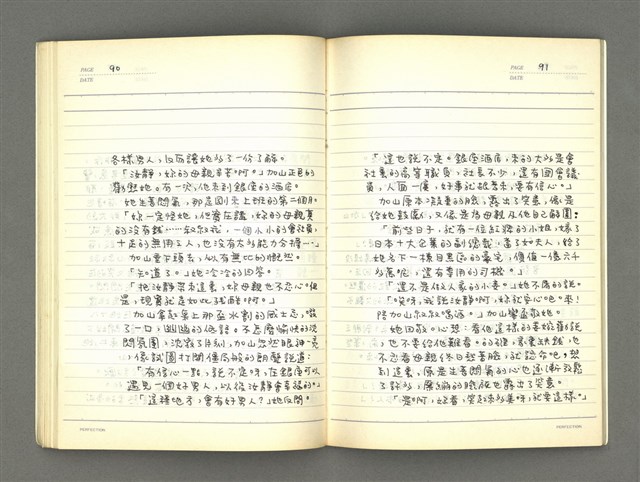 PAGE 90
DATE
各樣男人，反而讓她多了一份了解。
「汝靜，妳的母親辛苦啊。」加山正色的
她。有一次，他來到銀座的酒店。
她生著悶氣，那是回來上班的第二個月。
「妳一定怪她，但實在講，妳的母親真
的沒有錢……叔叔我，一個小小的會社員，
十足的無用之人，也沒有太多能力分擔…」
加山垂下頭去，似有無比的慨然。
「知道了。」她冷冷的回答。
「把汝靜帶來這裏，妳母親也不忍心。但
是，現實就是如此殘酷啊。」
加山拿起桌上那盃水割的威士忌，啜
了一口，幽幽的低語。不怎麼愉快的沈
悶氛圍，沈寂了片刻，加山忽然眼神一亮
，像試圖打開僵局般的朗聲說道：
「有信心一點，說不定呀，在銀座可以
遇見一個好男人，以後汝靜會幸福的。」
「這種地方，會有好男人？」她反問。
PERFECTION
PAGE 91
DATE
「這也說不定。銀座酒店，來的大多是會
社裏的高等職員，社長不少，還有國會議
員，人面一廣，好事就跟著來，要有信心。」
加山原本沒勁的臉，露出了笑意，像是
給她鼓勵，又像是為母親及他自己解圍：
「前些日子，就有一位紅牌的小姐，嫁了
日本十大企業的副總裁，當了如夫人，給了
她名下一棟目黑區的豪宅，價值一億六千
多萬呢，還有專用的司機。」
「還不是做人家的小妾。」她不屑的說。
「笑呀，我說汝靜啊，妳就安心吧。來！
陪加山叔叔喝酒。」加山舉盃敬她。
她回敬。心想：看他這樣的委婉著說
，也不要給他難看。的確，家裏缺錢，也
不忍看母親終日愁著臉，就認命吧。想
到這裏，原是生著悶氣的心也逐漸放鬆
了許多，
「是啊，好看，笑起來多美呀，就要這樣。」
PERFECTION